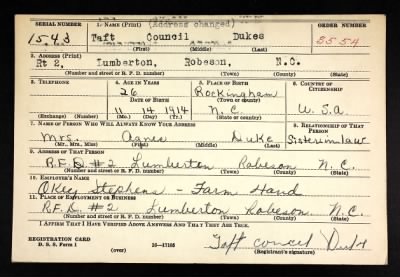 SERIAL NUMBER 1. NAME (Print) (Address changed) ORDER NUMBER
1543 Taft Council Dukes 2554
(First) (Middle) (Last)
2. ADDRESS (Print)
Rt 2, Lumberton, Robeson, N.C.
(Number and street or R. F. D. number) (Town) (County) (State)
3. TELEPHONE 4. AGE IN YEARS 5. PLACE OF BIRTH 6. COUNTRY OF CITIZENSHIP
26 Rockingham
DATE OF BIRTH (Town or county)
11 14 1914 N.C. U.S.A
(Exchange) (Number) (Mo.) (Day) (Yr.) (State or country)
7. NAME OF PERSON WHO WILL ALWAYS KNOW YOUR ADDRESS 8. RELATIONSHIP OF THAT PERSON
Mrs. Agnes Duke Sisterinlaw
(Mr., Mrs., Miss) (First) (Middle) (Last)
9. ADDRESS OF THAT PERSON
R.F.D #2 Lumberton Robeson N.C.
(Number and street or R. F. D. number) (Town) (County) (State)
10. EMPLOYER'S NAME
Okey Stephens - Farm Hand
11. PLACE OF EMPLOYMENT OR BUSINESS
R.F.D. #2 Lumberton Robeson N.C.
(Number and street or R. F. D. number) (Town) (County) (State)
I AFFIRM THAT I HAVE VERIFIED ABOVE ANSWERS AND THAT THEY ARE TRUE.
REGISTRATION CARD
D. S. S. Form 1 16-17105 Taft concil Duke
(over) (Registrant's signature)